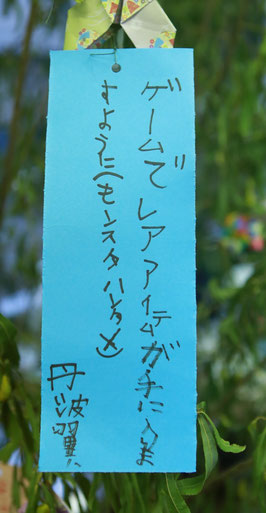 ゲームでレアアイテムが手に入りま
すように(モンスタハンター)
丹波翼